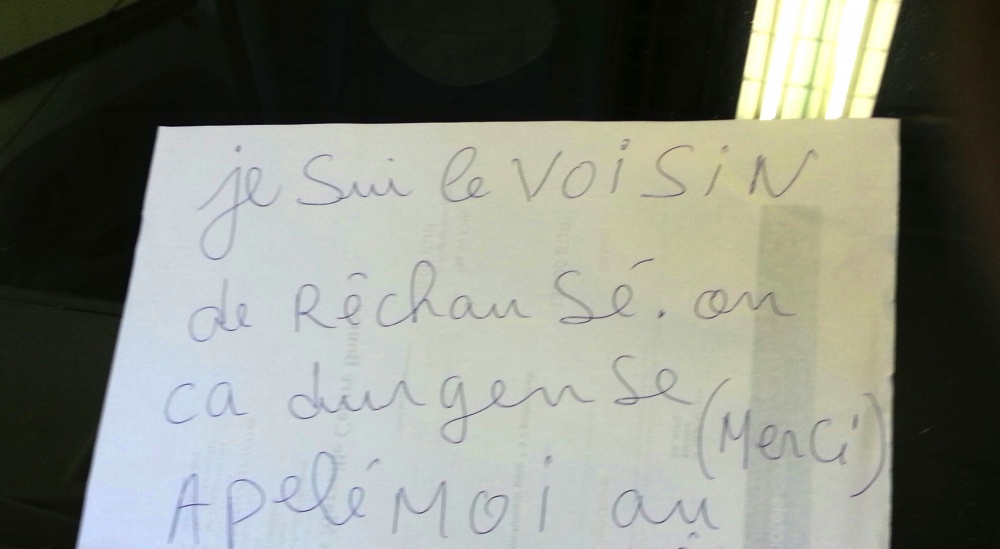 je Sui le VOiSiN
de Rêchau Sé. on
ca durgen Se
(Merci)
APeléMOi au